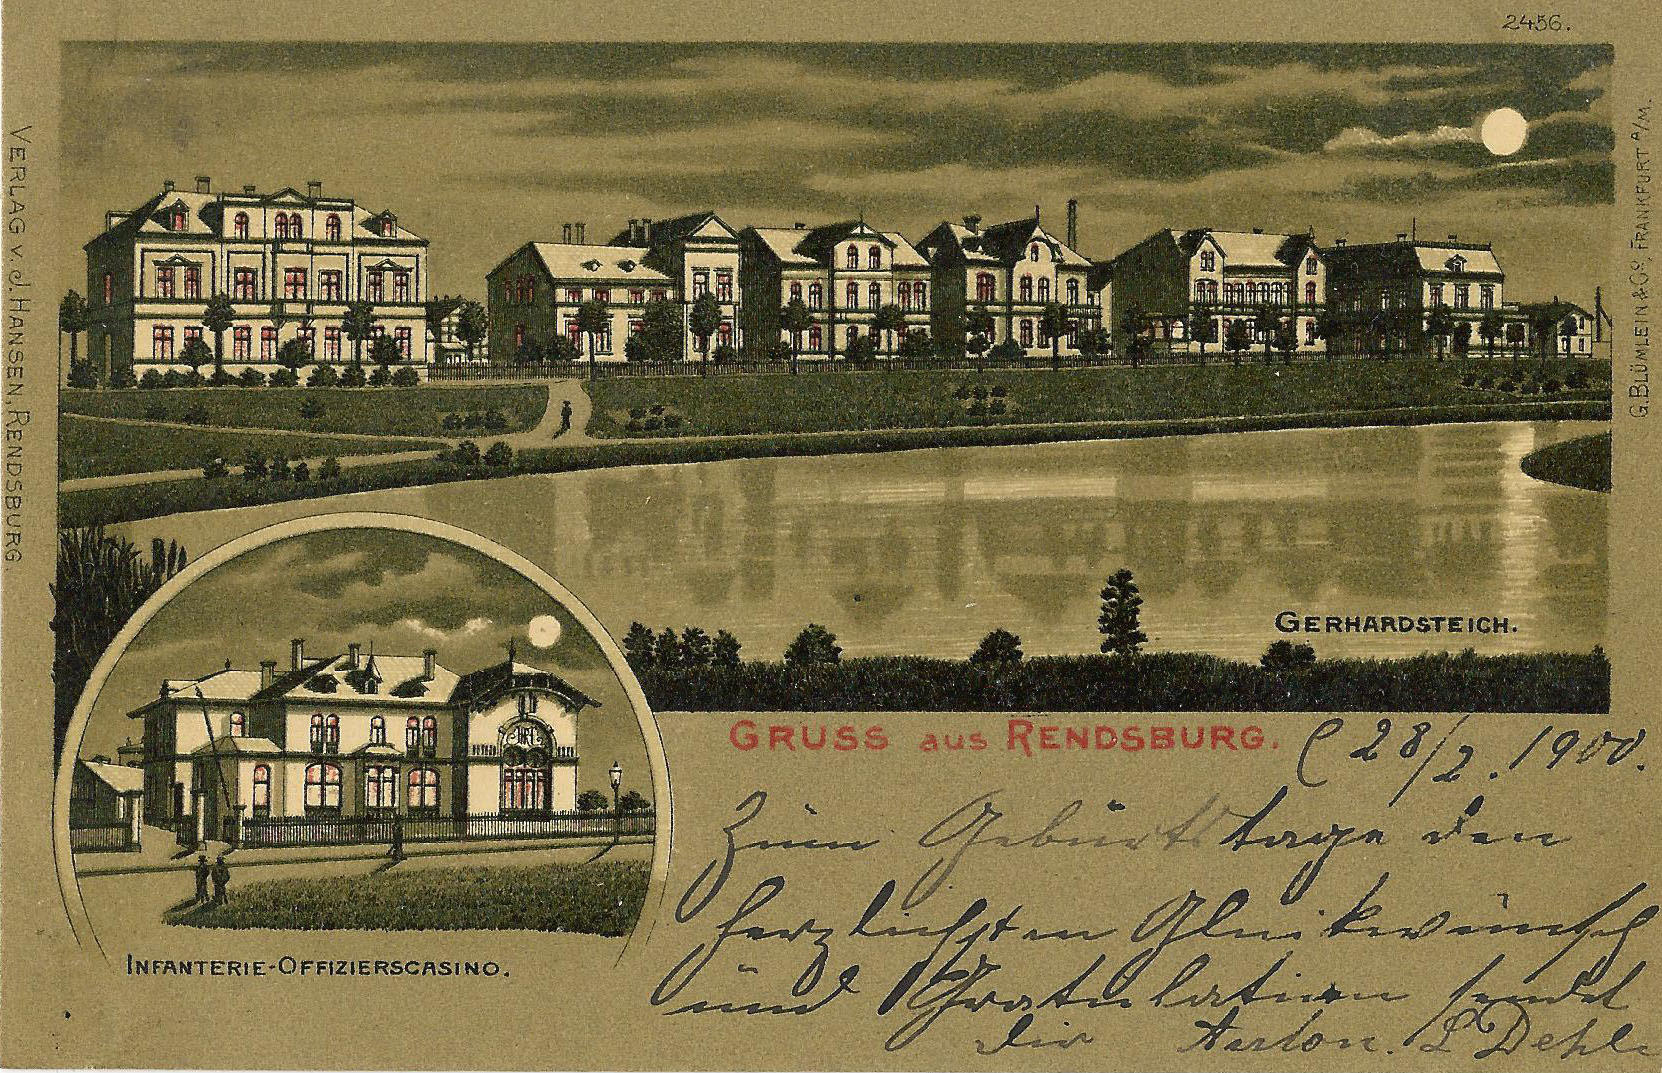 2456.
VERLAG V. J. HANSEN, RENDSBURG
G. BLÜMLEIN & Co., FRANKFURT A/M.
GERHARDSTEICH.
GRUSS AUS RENDSBURG.
28/2. 1900.
Zum Geburtstage den
herzlichsten Glückwunsch
und Gratulation sendet
Dir
INFANTERIE-OFFIZIERSCASINO.